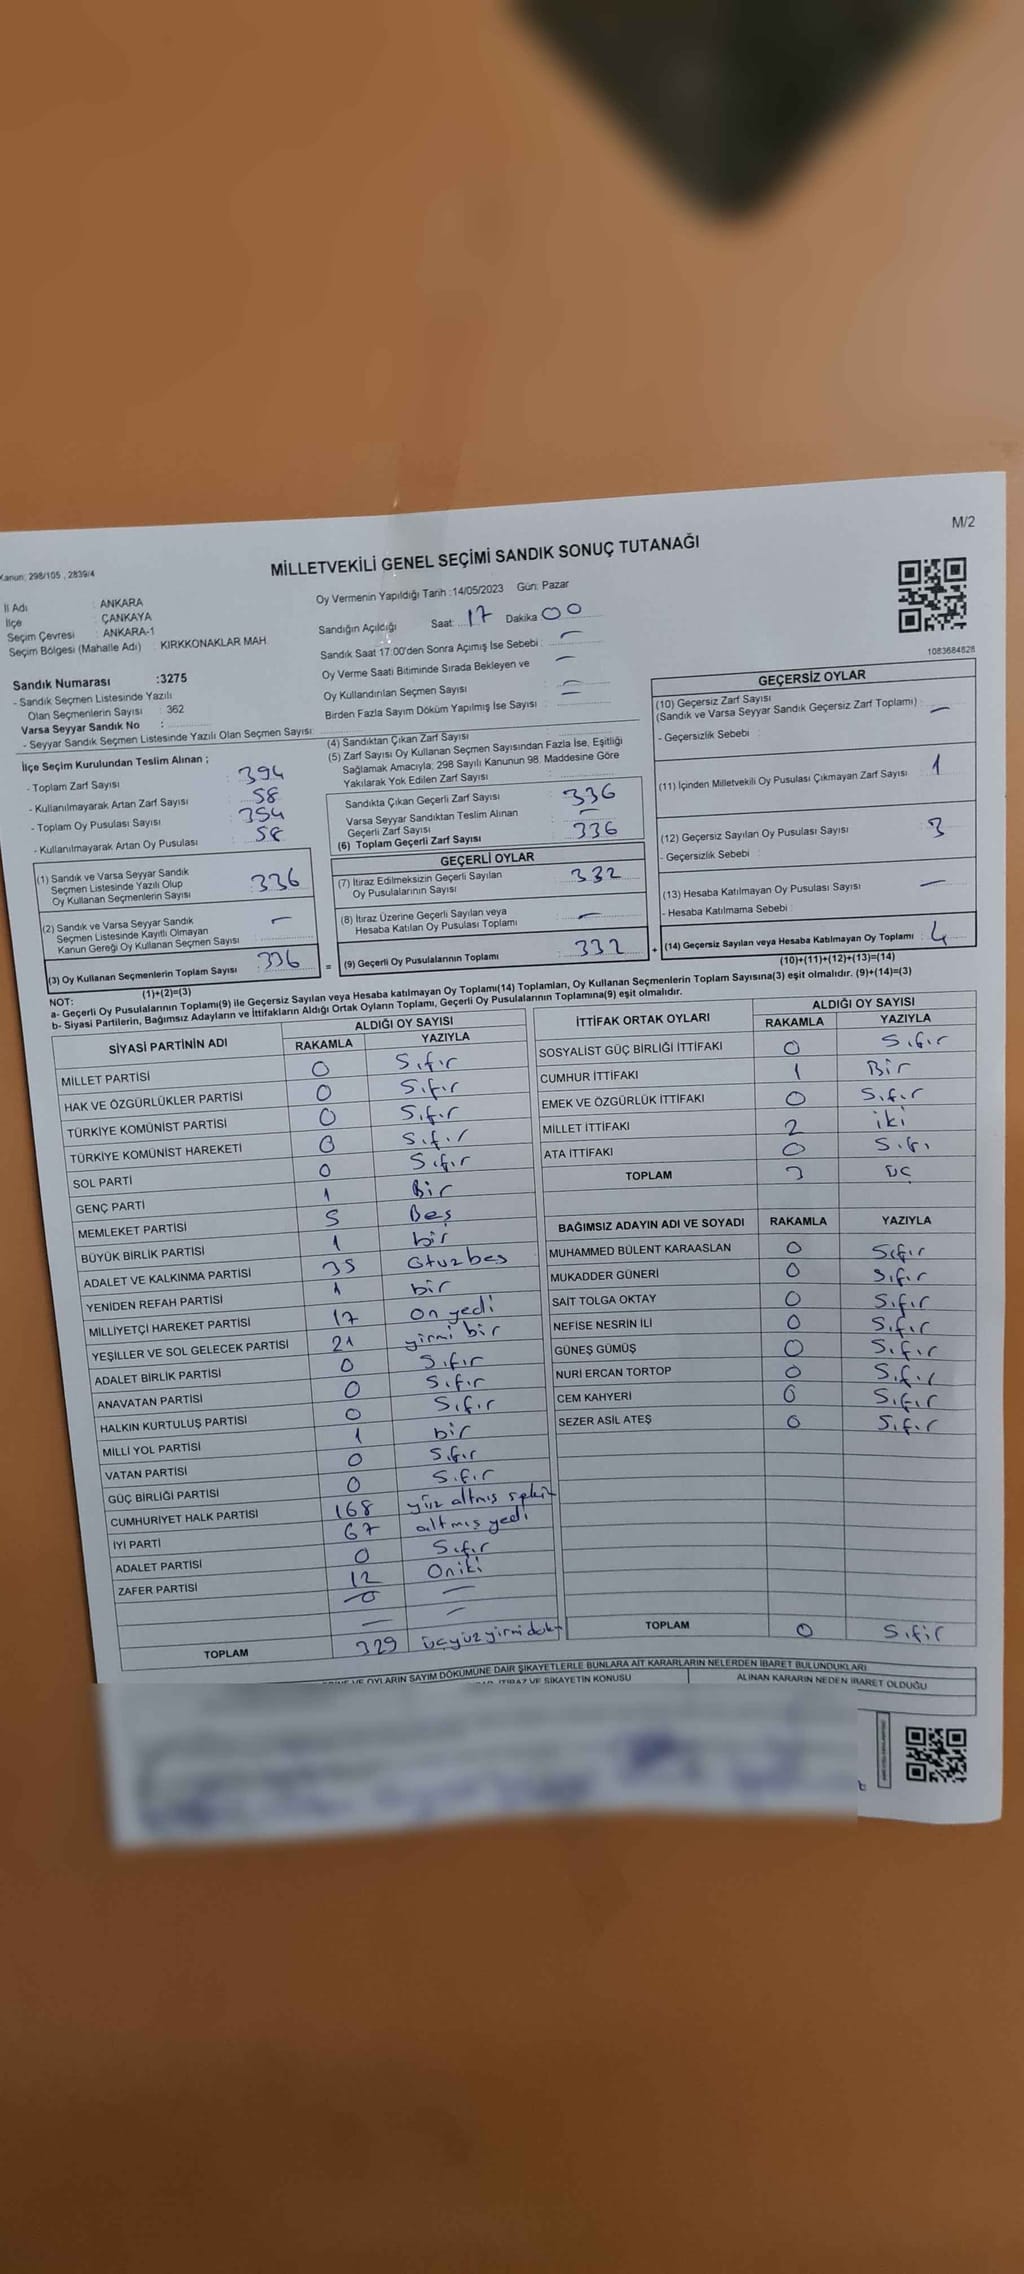 M/2
Kanun: 298/105 , 2839/4
MİLLETVEKİLİ GENEL SEÇİMİ SANDIK SONUÇ TUTANAĞI
İl Adı : ANKARA
İlçe : ÇANKAYA
Seçim Çevresi : ANKARA-1
Seçim Bölgesi (Mahalle Adı) : KIRKKONAKLAR MAH.
Sandık Numarası :3275
- Sandık Seçmen Listesinde Yazılı
Olan Seçmenlerin Sayısı : 362
Varsa Seyyar Sandık No :
- Seyyar Sandık Seçmen Listesinde Yazılı Olan Seçmen Sayısı:
Oy Vermenin Yapıldığı Tarih :14/05/2023 Gün: Pazar
Sandığın Açıldığı Saat: 17 Dakika 00
Sandık Saat 17:00'den Sonra Açımış İse Sebebi : —
Oy Verme Saati Bitiminde Sırada Bekleyen ve
Oy Kullandırılan Seçmen Sayısı —
Birden Fazla Sayım Döküm Yapılmış İse Sayısı : —
1083684828
İlçe Seçim Kurulundan Teslim Alınan ;
- Toplam Zarf Sayısı : 394
- Kullanılmayarak Artan Zarf Sayısı : 58
- Toplam Oy Pusulası Sayısı : 394
- Kullanılmayarak Artan Oy Pusulası : 58
(1) Sandık ve Varsa Seyyar Sandık
Seçmen Listesinde Yazılı Olup
Oy Kullanan Seçmenlerin Sayısı : 336
(2) Sandık ve Varsa Seyyar Sandık
Seçmen Listesinde Kayıtlı Olmayan
Kanun Gereği Oy Kullanan Seçmen Sayısı : —
(3) Oy Kullanan Seçmenlerin Toplam Sayısı : 336
(1)+(2)=(3)
(4) Sandıktan Çıkan Zarf Sayısı :
(5) Zarf Sayısı Oy Kullanan Seçmen Sayısından Fazla İse, Eşitliği
Sağlamak Amacıyla; 298 Sayılı Kanunun 98. Maddesine Göre
Yakılarak Yok Edilen Zarf Sayısı :
Sandıkta Çıkan Geçerli Zarf Sayısı : 336
Varsa Seyyar Sandıktan Teslim Alınan
Geçerli Zarf Sayısı : —
(6) Toplam Geçerli Zarf Sayısı : 336
GEÇERLİ OYLAR
(7) İtiraz Edilmeksizin Geçerli Sayılan
Oy Pusulalarının Sayısı : 332
(8) İtiraz Üzerine Geçerli Sayılan veya
Hesaba Katılan Oy Pusulası Toplamı : —
= (9) Geçerli Oy Pusulalarının Toplamı : 332
GEÇERSİZ OYLAR
(10) Geçersiz Zarf Sayısı
(Sandık ve Varsa Seyyar Sandık Geçersiz Zarf Toplamı) : —
- Geçersizlik Sebebi :
(11) İçinden Milletvekili Oy Pusulası Çıkmayan Zarf Sayısı : 1
(12) Geçersiz Sayılan Oy Pusulası Sayısı : 3
- Geçersizlik Sebebi :
(13) Hesaba Katılmayan Oy Pusulası Sayısı : —
- Hesaba Katılmama Sebebi :
+ (14) Geçersiz Sayılan veya Hesaba Katılmayan Oy Toplamı : 4
(10)+(11)+(12)+(13)=(14)
NOT:
a- Geçerli Oy Pusulalarının Toplamı(9) ile Geçersiz Sayılan veya Hesaba katılmayan Oy Toplamı(14) Toplamları, Oy Kullanan Seçmenlerin Toplam Sayısına(3) eşit olmalıdır. (9)+(14)=(3)
b- Siyasi Partilerin, Bağımsız Adayların ve İttifakların Aldığı Ortak Oyların Toplamı, Geçerli Oy Pusulalarının Toplamına(9) eşit olmalıdır.
SİYASİ PARTİNİN ADI ALDIĞI OY SAYISI
RAKAMLA YAZIYLA
MİLLET PARTİSİ 0 Sıfır
HAK VE ÖZGÜRLÜKLER PARTİSİ 0 Sıfır
TÜRKİYE KOMÜNİST PARTİSİ 0 Sıfır
TÜRKİYE KOMÜNİST HAREKETİ 0 Sıfır
SOL PARTİ 0 Sıfır
GENÇ PARTİ 1 Bir
MEMLEKET PARTİSİ 5 Beş
BÜYÜK BİRLİK PARTİSİ 1 bir
ADALET VE KALKINMA PARTİSİ 35 Otuzbes
YENİDEN REFAH PARTİSİ 1 bir
MİLLİYETÇİ HAREKET PARTİSİ 17 On yedi
YEŞİLLER VE SOL GELECEK PARTİSİ 21 yirmi bir
ADALET BİRLİK PARTİSİ 0 Sıfır
ANAVATAN PARTİSİ 0 Sıfır
HALKIN KURTULUŞ PARTİSİ 0 Sıfır
MİLLİ YOL PARTİSİ 1 bir
VATAN PARTİSİ 0 Sıfır
GÜÇ BİRLİĞİ PARTİSİ 0 Sıfır
CUMHURİYET HALK PARTİSİ 168 yüz altmış sekiz
İYİ PARTİ 67 altmış yedi
ADALET PARTİSİ 0 Sıfır
ZAFER PARTİSİ 12 Oniki
TOPLAM 329 üçyüzyirmidok
İTTİFAK ORTAK OYLARI ALDIĞI OY SAYISI
RAKAMLA YAZIYLA
SOSYALİST GÜÇ BİRLİĞİ İTTİFAKI 0 Sıfır
CUMHUR İTTİFAKI 1 Bir
EMEK VE ÖZGÜRLÜK İTTİFAKI 0 Sıfır
MİLLET İTTİFAKI 2 iki
ATA İTTİFAKI 0 Sıfı
TOPLAM 3 üç
BAĞIMSIZ ADAYIN ADI VE SOYADI RAKAMLA YAZIYLA
MUHAMMED BÜLENT KARAASLAN 0 Sıfır
MUKADDER GÜNERİ 0 Sıfır
SAİT TOLGA OKTAY 0 Sıfır
NEFİSE NESRİN İLİ 0 Sıfır
GÜNEŞ GÜMÜŞ 0 Sıfır
NURİ ERCAN TORTOP 0 Sıfır
CEM KAHYERİ 0 Sıfır
SEZER ASİL ATEŞ 0 Sıfır
TOPLAM 0 Sıfır
VE OYLARIN SAYIM DÖKÜMÜNE DAİR ŞİKAYETLERLE BUNLARA AİT KARARLARIN NELERDEN İBARET BULUNDUKLARI
İTİRAZ VE ŞİKAYETİN KONUSU ALINAN KARARIN NEDEN İBARET OLDUĞU